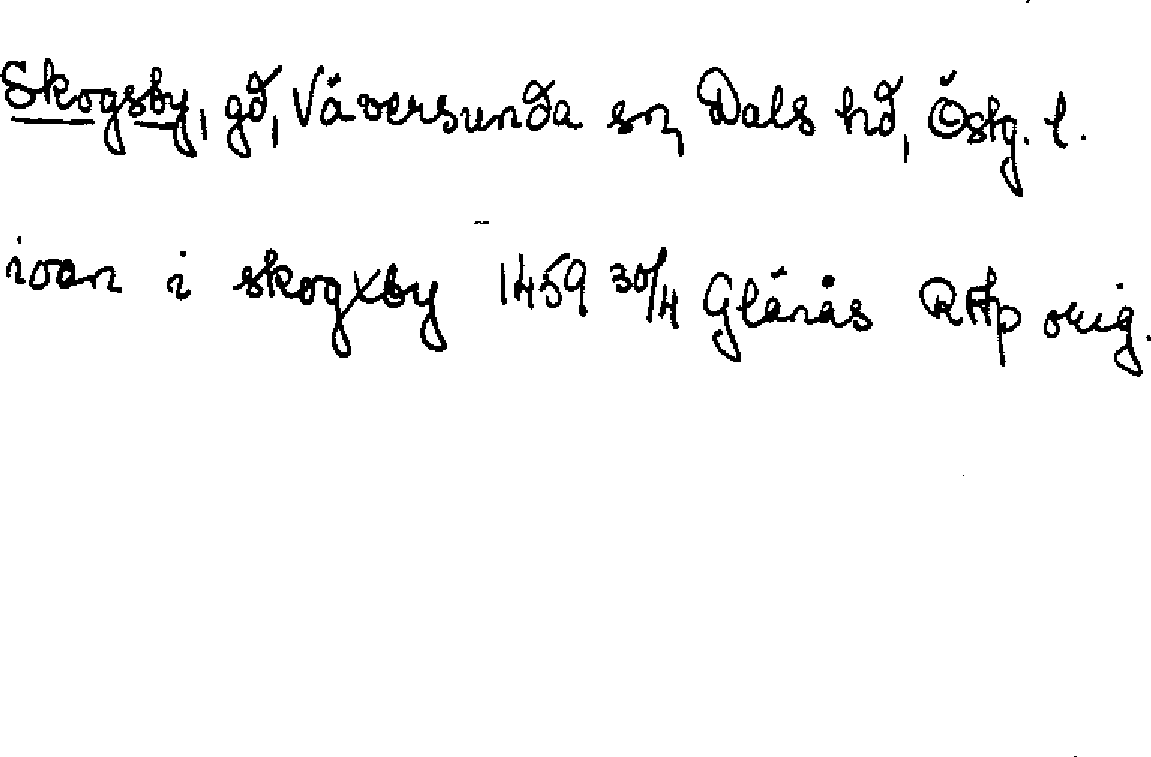 Skogsby, gd, Väversunda sn, Dals hd, Östg. l.
ivan i skogxby 1459 30/4 Glänås RAp orig.